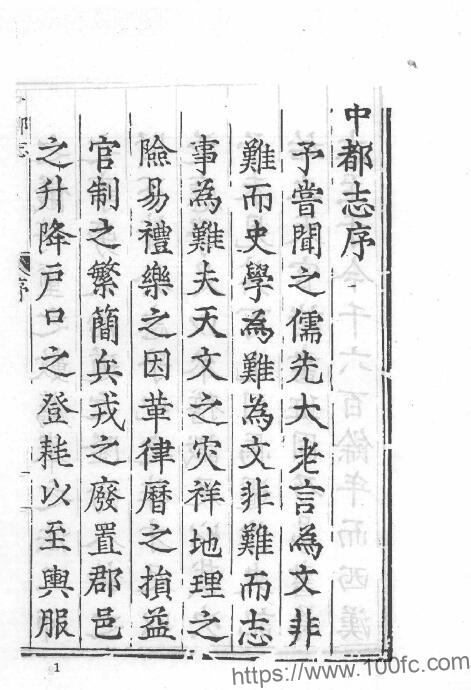 中都志序
予嘗聞之儒先大老言為文非
難而史學為難為文非難而志
事為難夫天文之灾祥地理之
險易禮樂之因革律曆之損益
官制之繁簡兵戎之廢置郡邑
之升降户口之登耗以至輿服
都志
序
1
https://www.100fc.com